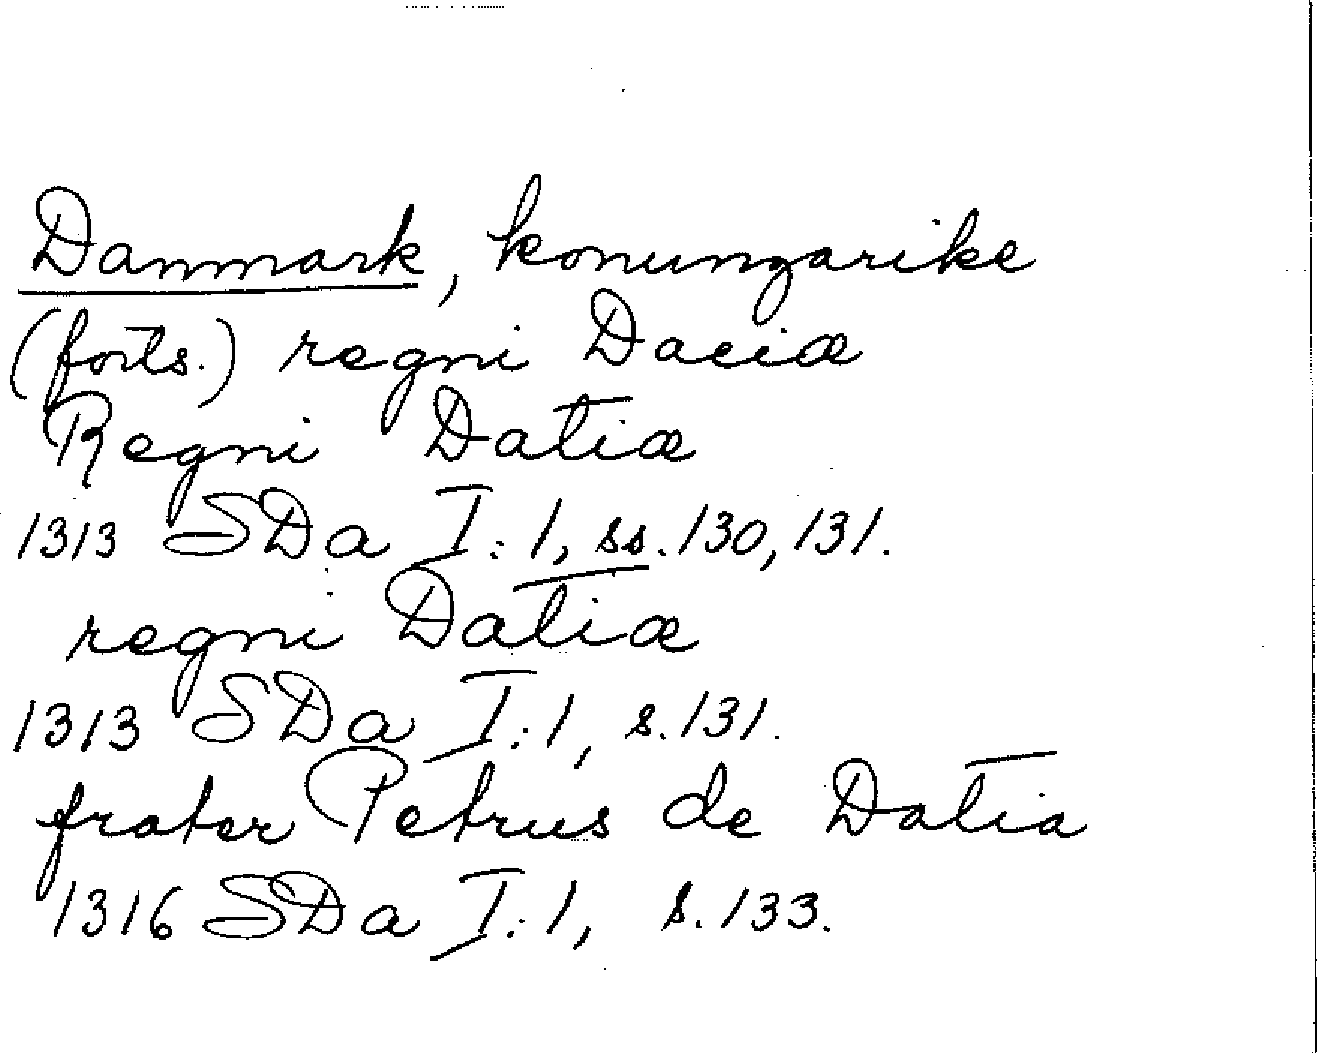 Danmark, konungarike
(forts.) regni Daciæ
Regni Datiæ
1313 SDa I:1, ss. 130, 131.
regni Datiæ
1313 SDa I:1, s. 131.
frater Petrus de Datia
1316 SDa I:1, s. 133.